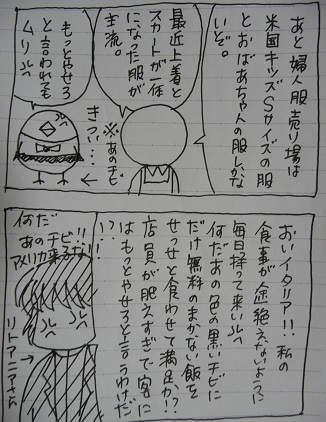 あと婦人服売り場は
米国キッズSサイズの服
とおばあちゃんの服しかな
いぞ。
最近上着と
スカートが一体
になった服が
主流。
※あのチビ
きつい…
もっとやせろ
と言われても
ムリ
おいイタリア!!私の
食事が途絶えないように
毎日様って来い
何だあの色の黒いチビに
だけ無料のまかない飯を
せっせと食わせて満足か!?
店員が肥えすぎて客に
はもっとやせろと言うわけだ
!?
何だ
あのチビ
アメリカ来る
リトアニアさん